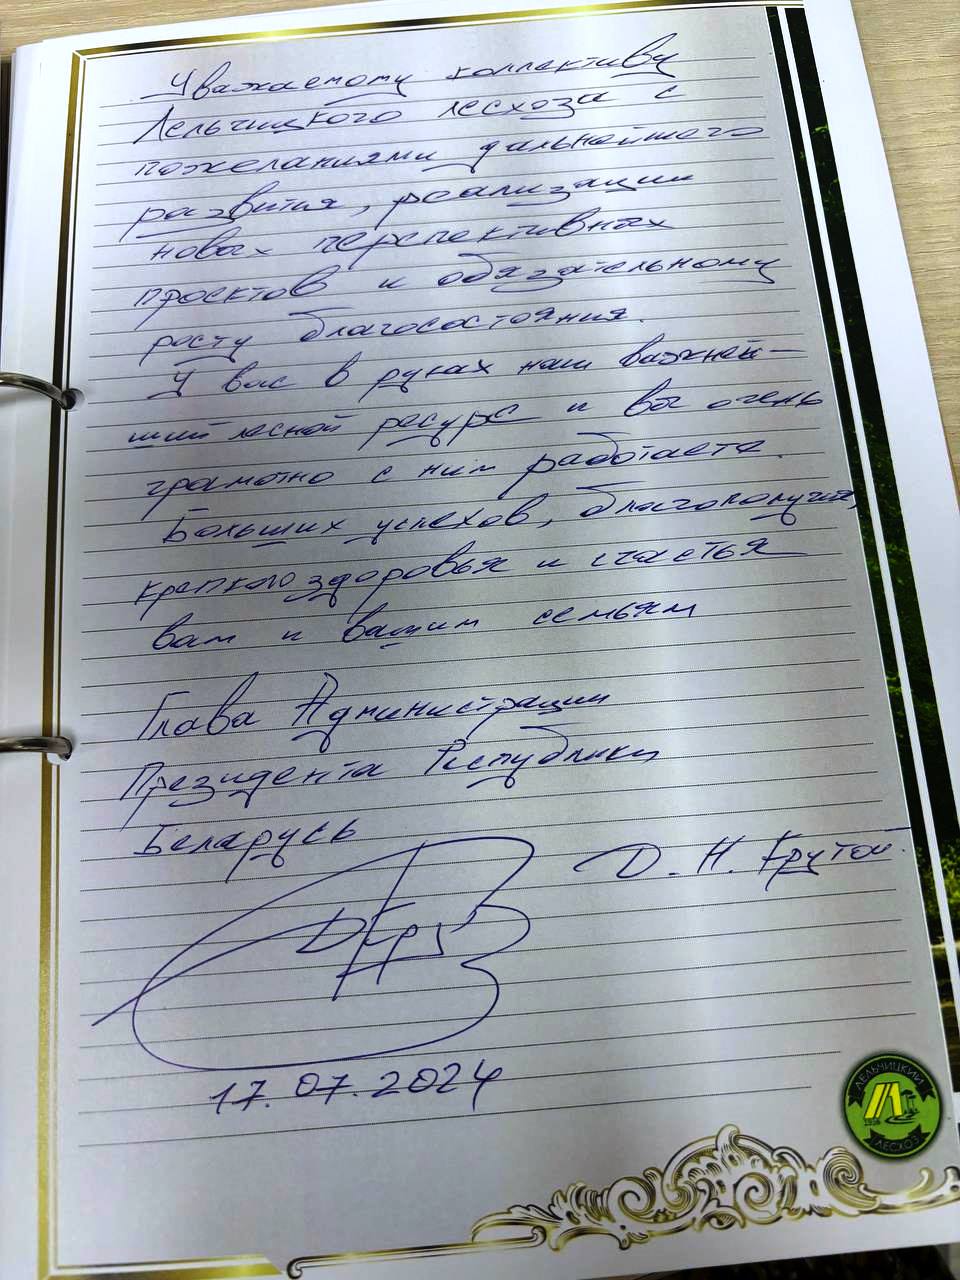 Уважаемому коллективу
Лельчицкого лесхоза с
пожеланиями дальнейшего
развития, реализации
новых перспективных
проектов и обязательному
росту благосостояния.
У вас в руках наш важней-
ший лесной ресурс и вы очень
грамотно с ним работаете.
Больших успехов, благополучия,
крепкого здоровья и счастья
вам и вашим семьям
Глава Администрации
Президента Республики
Беларусь
Д. Н. Крутой.
17.07.2024
ЛЕЛЬЧИЦКИЙ
ЛЕСХОЗ